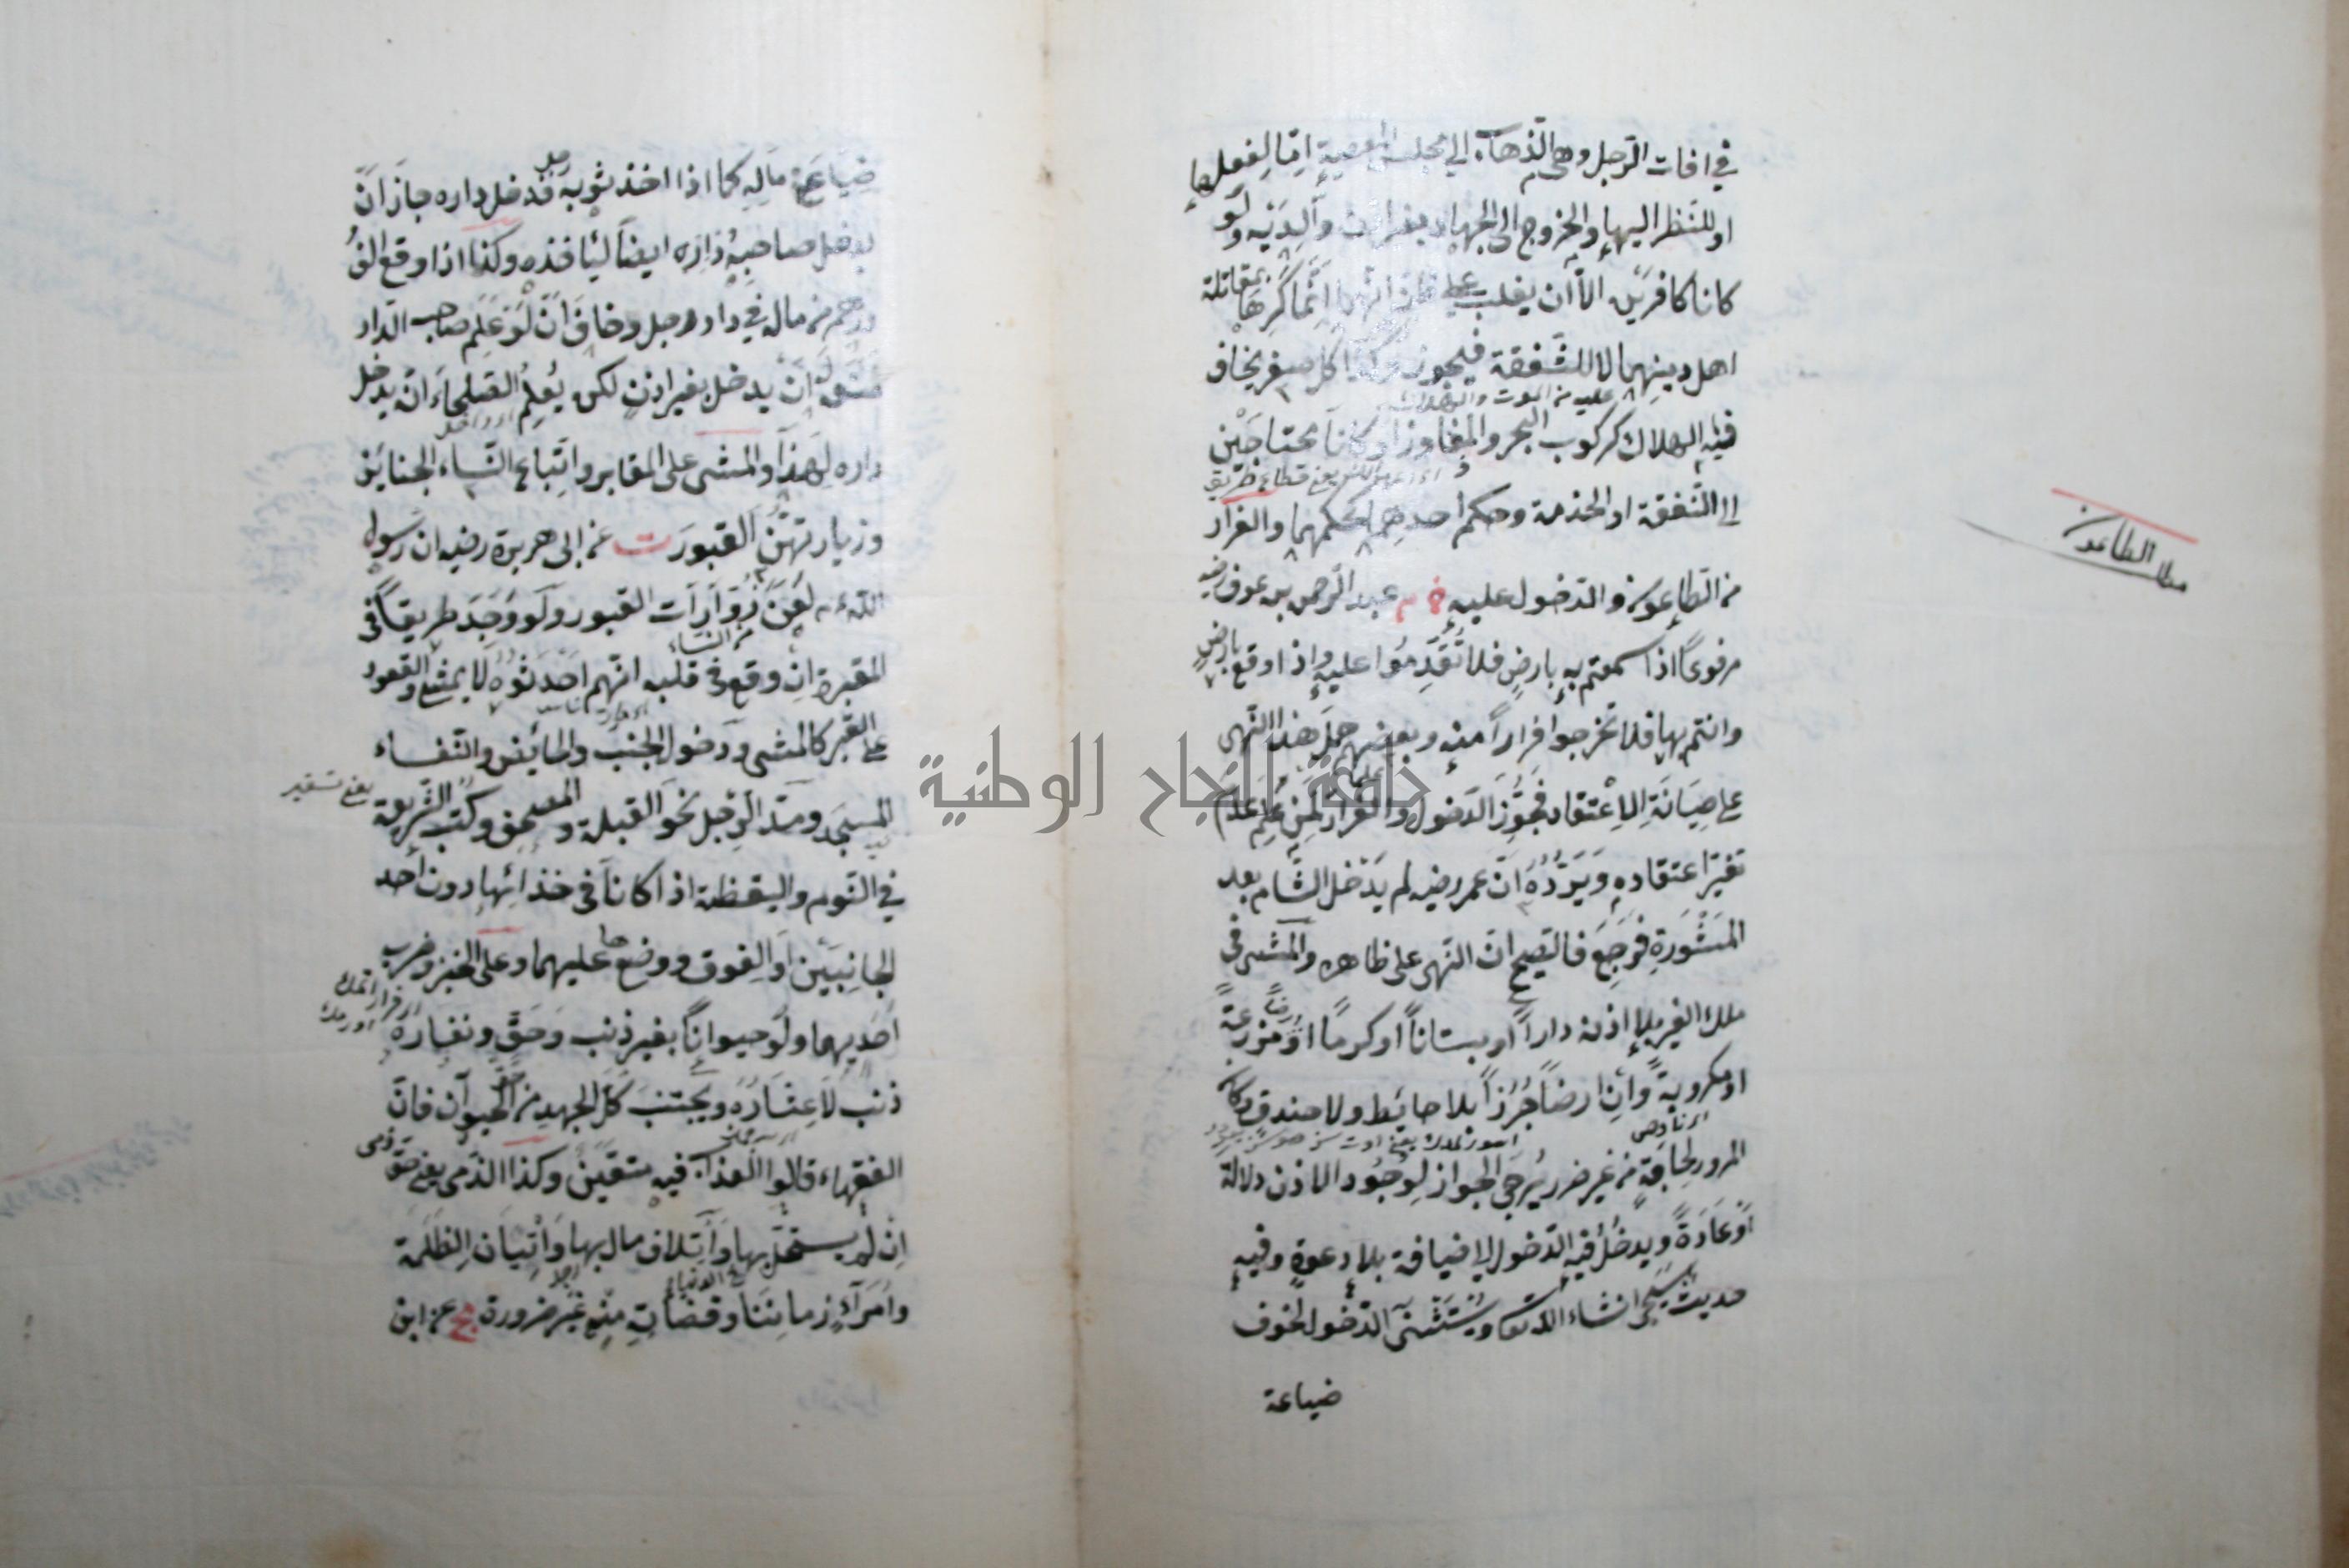 في افات الرجل وهي الذهاب الى مجلس المعصية اما لفعلها
او للنظر اليها والخروج الى الجهاد بغير اذن والديه ولو
كانا كافرين الا ان يغلب على ظنه انهما انما كرها مقاتلة
اهل دينهما لا للشفقة فيجوز وكذا كل سفر يخاف
عليه من الموت والهلاك
فيه الهلاك كركوب البحر والمفاوز او كانا محتاجين
يعني قطاع طريق
الى النفقة او الخدمة وحكم احدهما كحكمهما والفرار
من الطاعون والدخول عليه خ م عبد الرحمن بن عوف رضيه
مطلب الطاعون
مرفوعا اذا سمعتم به بارض فلا تقدموا عليه واذا وقع بارض
وانتم بها فلا تخرجوا فرارا منه وبعضهم حمل هذا النهى
على صيانة الاعتقاد فجوز الدخول والفرار لمن علم عدم
تغير اعتقاده ويرده ان عمر رضيه لم يدخل الشام بعد
المشورة فرجع فالصحيح ان النهى على ظاهره والمشى في
ملك الغير بلا اذنه دارا او بستانا او كرما او مزرعة
او مكروبة وان ارضا جرزا بلا حائط ولا خندق وكان
المرور لحاجة من غير ضرر يرجى الجواز لوجود الاذن دلالة
او عادة ويدخل فيه الدخول الى ضيافة بلا دعوة وفيه
حديث سيجئ انشاء الله تعالى ويستثنى الدخول لخوف
ضياعة
ضياع ماله كما اذا اخذ ثوبه رجل فدخل داره جاز ان
يدخل صاحبه داره ايضا ليأخذه وكذا اذا وقع الف
درهم من مال في دار رجل وخاف ان لو علم صاحب الدار
منعه له ان يدخل بغير اذن لكن يعلم الصلحاء ان يدخل
داره لهذا والمشى على المقابر واتباع النساء الجنائز
وزيارتهن القبور ت عن ابى هريرة رضيه ان رسول
الله لعن زوارات القبور ولو وجد طريقا في
من النساء
المقبرة ان وقع في قلبه انهم احدثوه لا يمشى والقعود
على القبر كالمشى ودخول الجنب والحائض والنفساء
المسجد ومد الرجل نحو القبلة والمصحف وكتب الشريعة
في النوم واليقظة اذا كانا في حذائها دون احد
الجانبين او الفوق ووضعها عليهما وعلى الخبز وضرب
احد بهما ولو حيوانا بغير ذنب وحق ونفاره
ذنب لا عثاره ويجتنب كل الجهد من حق الحيوان فان
الفقهاء قالوا العذاب فيه متعين وكذا الذمى يعنى حق ذمى
ان لم يستحل بها واتلاف مال بها واتيان الظلمة
وامراء زماننا وقضاته من غير ضرورة مج عن ابن
جامعة النجاح الوطنية